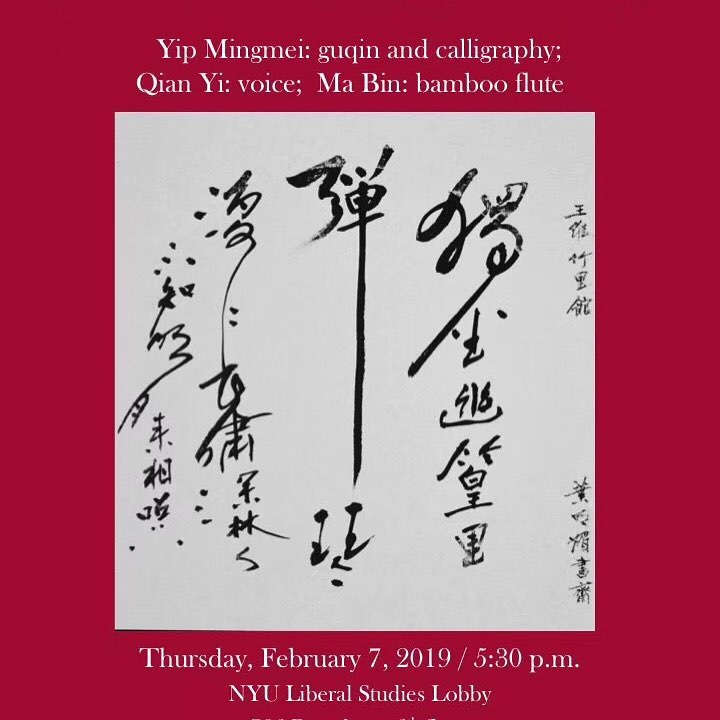 Yip Mingmei: guqin and calligraphy;
Qian Yi: voice; Ma Bin: bamboo flute
王維 竹里館
葉明媚書齋
獨坐幽篁里
彈琴
長嘯深林人
不知明月来相照
Thursday, February 7, 2019 / 5:30 p.m.
NYU Liberal Studies Lobby